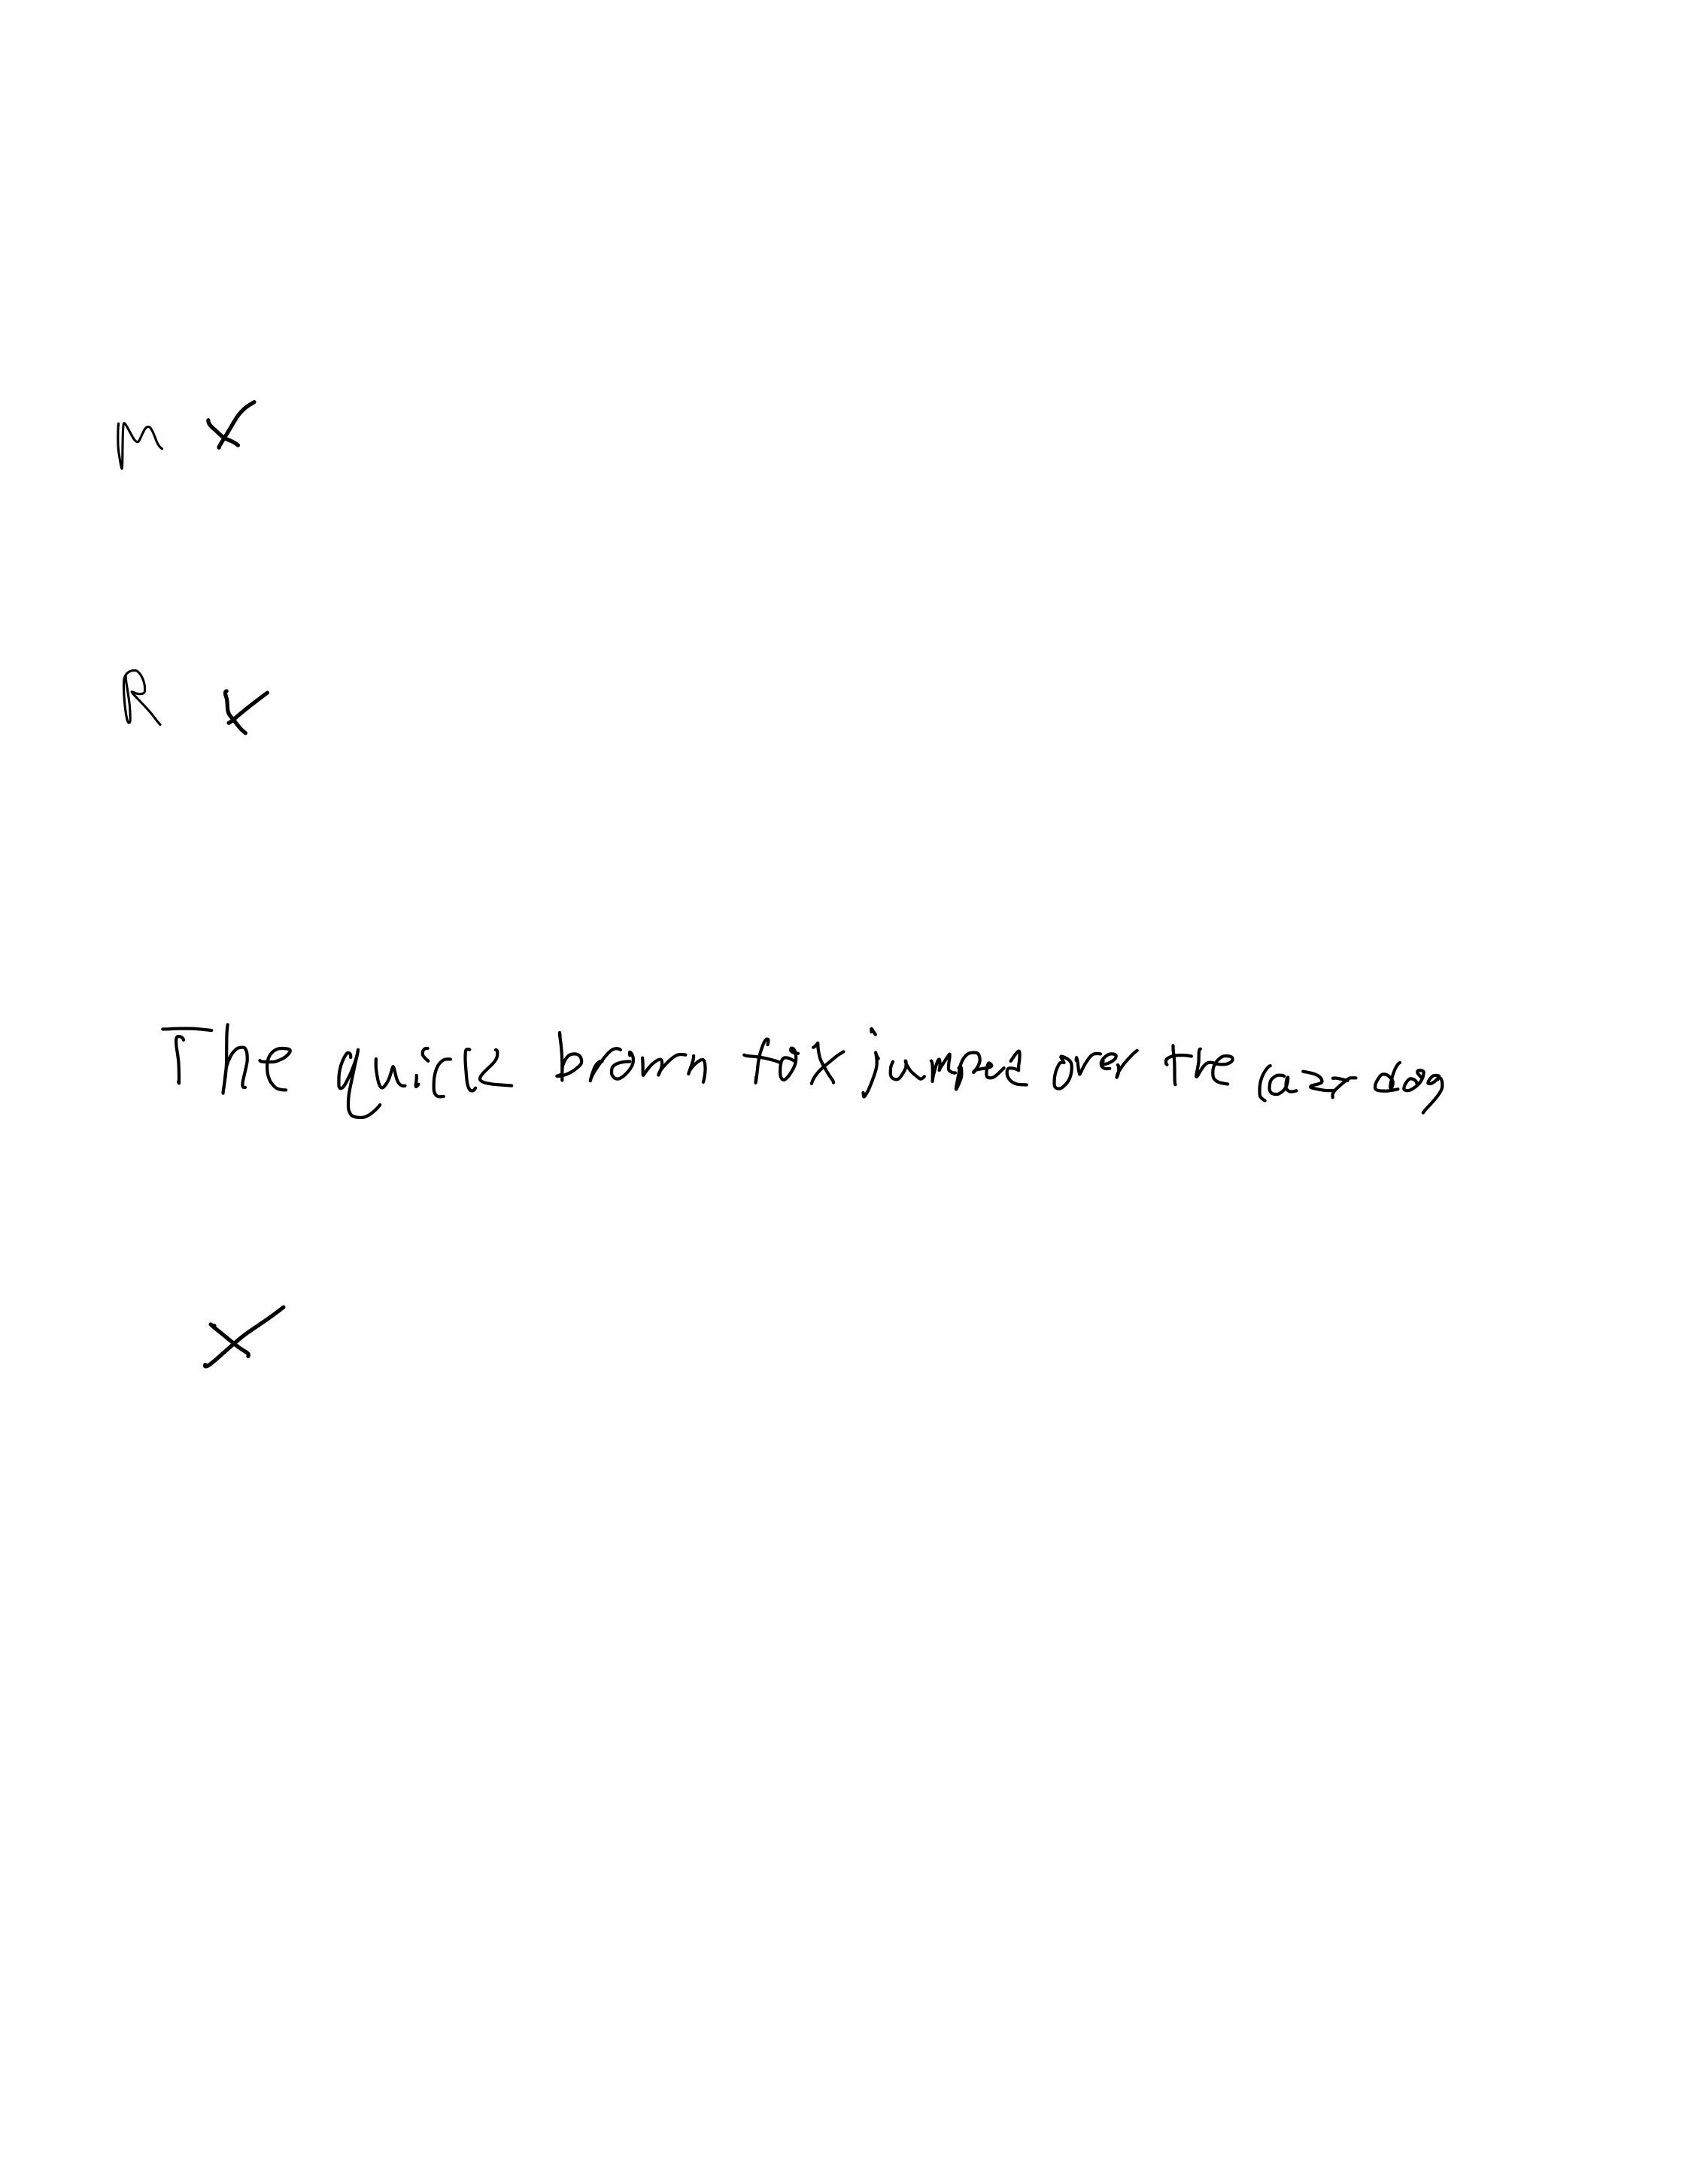 M X
R X
The quick brown fox jumped over the lazy dog
X